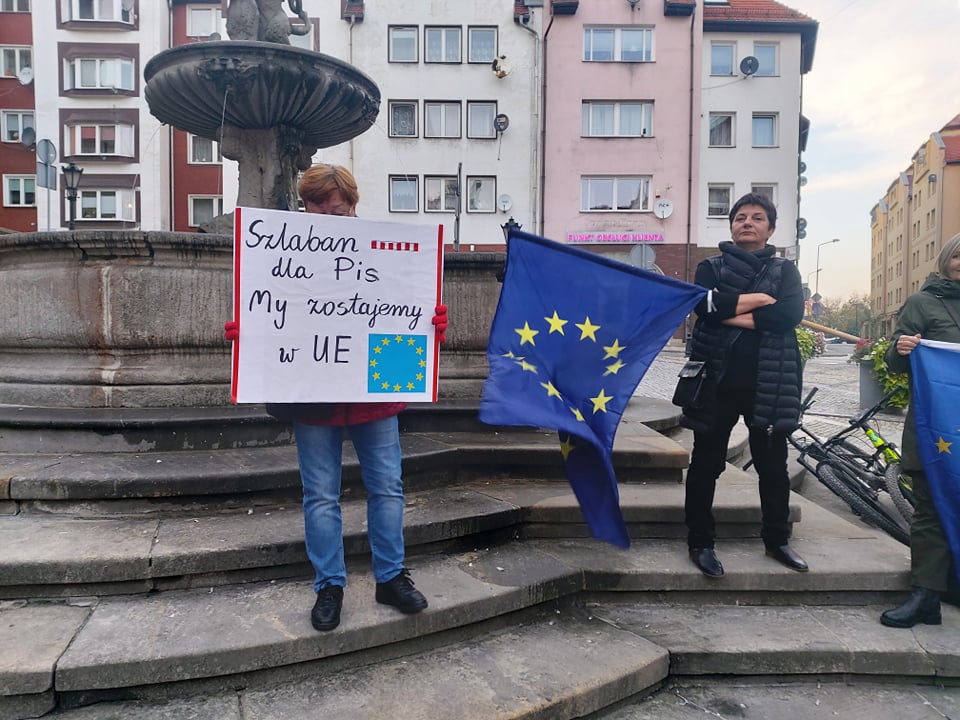 Szlaban
dla Pis
My zostajemy
w UE
PUNKT OBSŁUGI KLIENTA